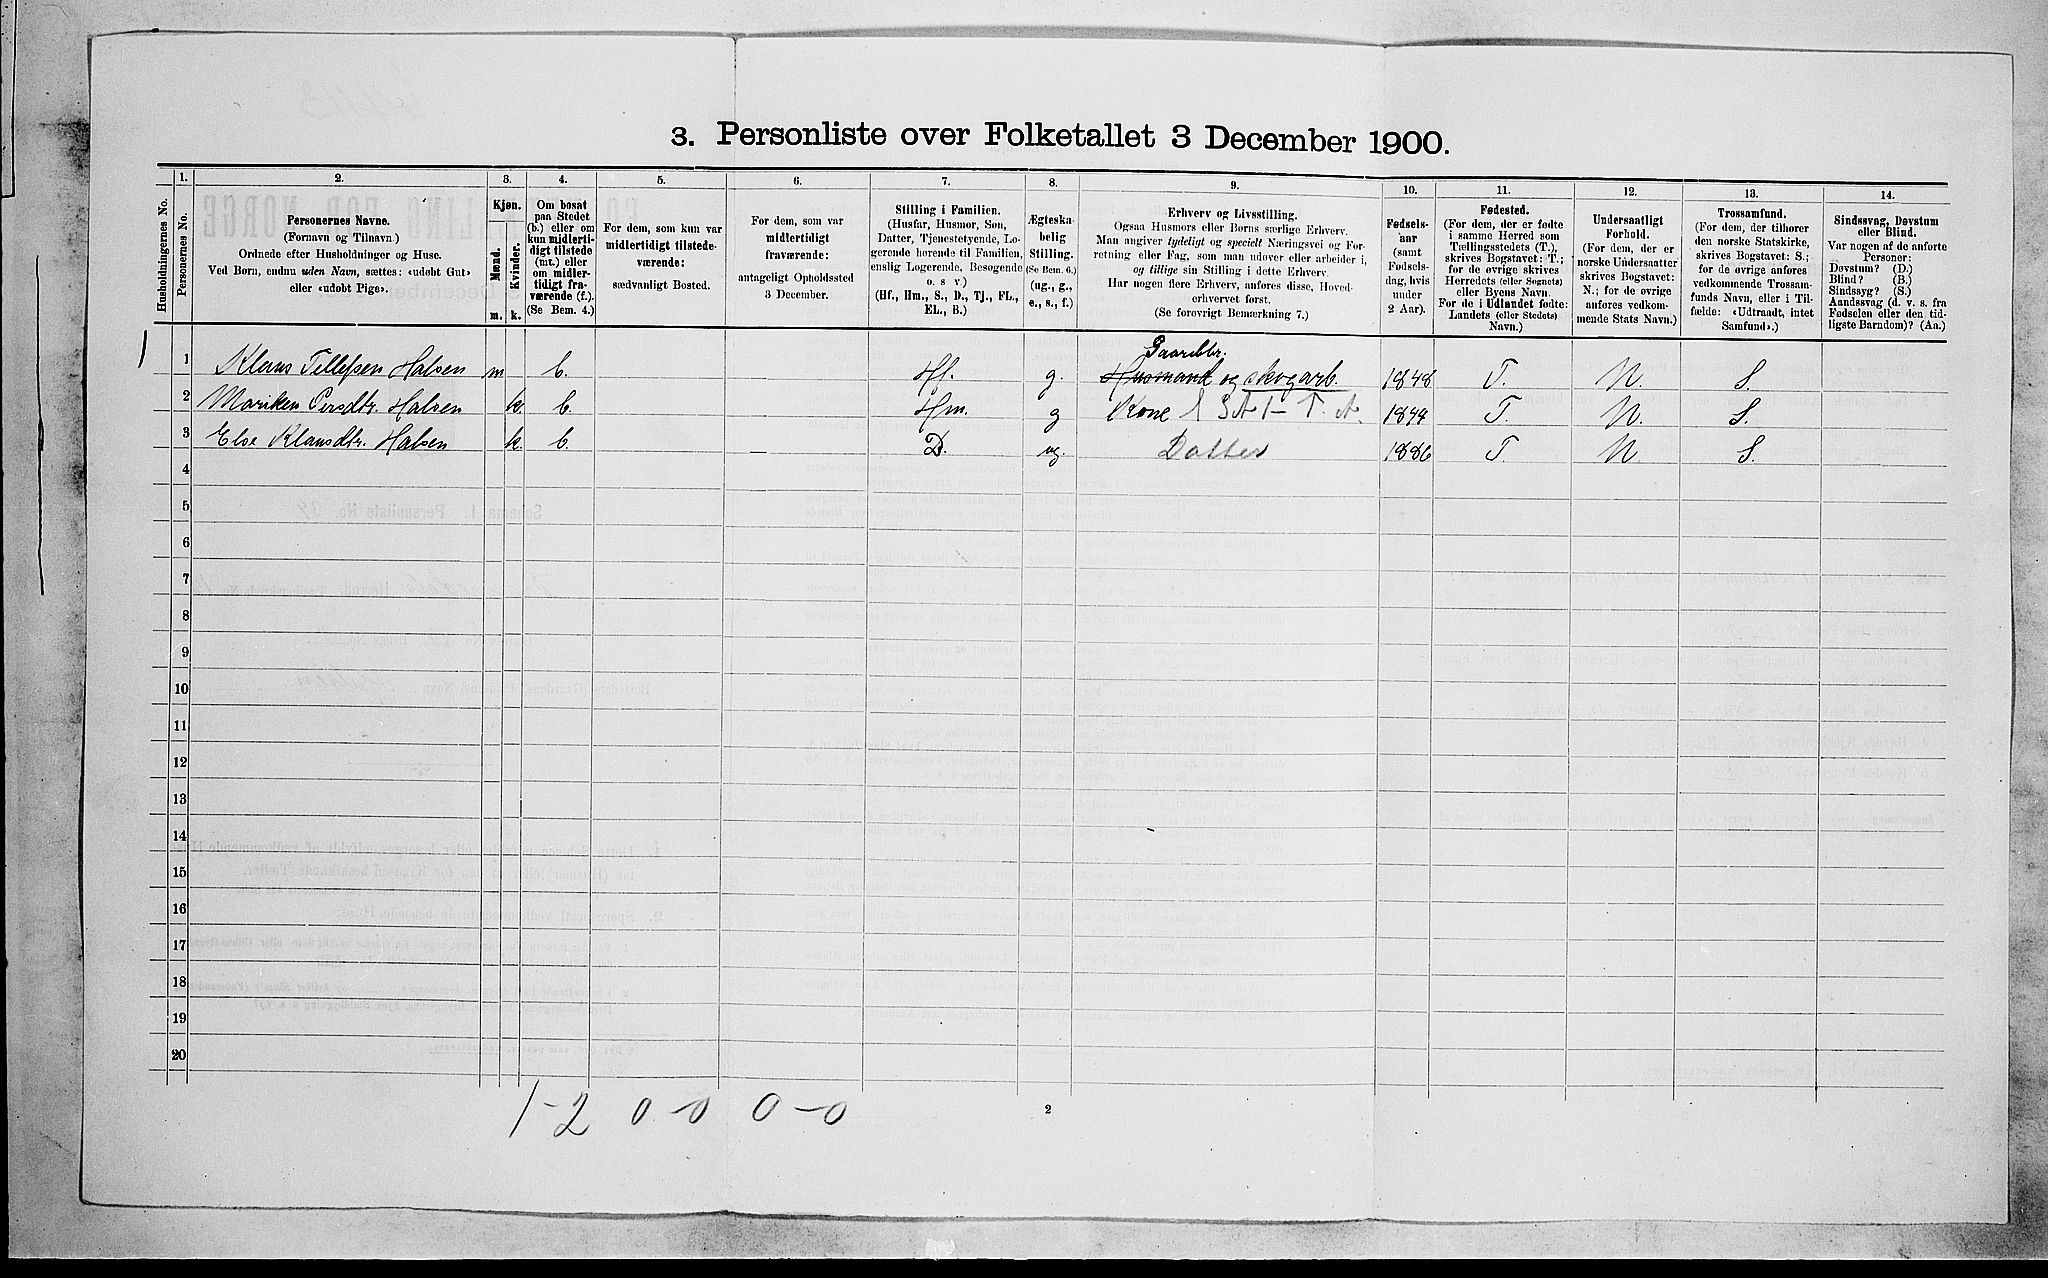 3. Personliste over Folketallet 3 December 1900.
1. 2. 3. 4. 5. 6. 7. 8. 9. 10. 11. 12. 13. 14.
Husholdningernes No.
Personernes No.
Personernes Navne.
(Fornavn og Tilnavn.)
Ordnede efter Husholdninger og Huse.
Ved Børn, endnu uden Navn, sættes: «udøbt Gut»
eller «udøbt Pige».
Kjøn.
Mænd.
Kvinder.
m. k.
Om bosat
paa Stedet
(b.) eller om
kun midlerti-
digt tilstede
(mt.) eller
om midler-
tidigt fra-
værende (f.).
(Se Bem. 4.)
For dem, som kun var
midlertidigt tilstede-
værende:
sædvanligt Bosted.
For dem, som var
midlertidigt
fraværende:
antageligt Opholdssted
3 December.
Stilling i Familien.
(Husfar, Husmor, Søn,
Datter, Tjenestetyende, Lo-
gerende hørende til Familien,
enslig Logerende, Besøgende
o. s v.)
(Hf., Hm., S., D., Tj., FL.,
EL., B.)
Ægteska-
belig
Stilling.
(Se Bem. 6.)
(ug., g.,
e., s., f.)
Erhverv og Livsstilling.
Ogsaa Husmors eller Børns særlige Erhverv.
Man angiver tydeligt og specielt Næringsvei og For-
retning eller Fag, som man udøver eller arbeider i,
og tillige sin Stilling i dette Erhverv.
Har nogen flere Erhverv, anføres disse, Hoved-
erhvervet først.
(Se forøvrigt Bemærkning 7.)
Fødsels-
aar
(samt
Fødsels-
dag, hvis
under
2 Aar).
Fødested.
(For dem, der er fødte
i samme Herred som
Tællingsstedets (T.),
skrives Bogstavet: T.;
for de øvrige skrives
Herredets (eller Sognets)
eller Byens Navn.
For de i Udlandet fødte:
Landets (eller Stedets)
Navn.)
Undersaatligt
Forhold.
(For dem, der er
norske Undersaatter
skrives Bogstavet:
N.; for de øvrige
anføres vedkom-
mende Stats Navn.)
Trossamfund.
(For dem, der tilhører
den norske Statskirke,
skrives Bogstavet: S.;
for de øvrige anføres
vedkommende Trossam-
funds Navn, eller i Til-
fælde: «Udtraadt, intet
Samfund».)
Sindssvag, Døvstum
eller Blind.
Var nogen af de anførte
Personer:
Døvstum? (D.)
Blind? (B.)
Sindssyg? (S.)
Aandssvag (d. v. s. fra
Fødselen eller den tid-
ligste Barndom)? (Aa.)
1 1 Klaus Tellefsen Halsen m b. Hf. g. Husmand og skogarb. 1848 T. N. S.
2 Mariken Persdtr. Halsen k. b. Hm. g Kone 1849 T. N. S.
3 Else Klausdtr. Halsen k. b. D. ug. Datter 1886 T. N. S.
4
5
6
7
8
9
10
11
12
13
14
15
16
17
18
19
20
1-2 0-0 0-0
2